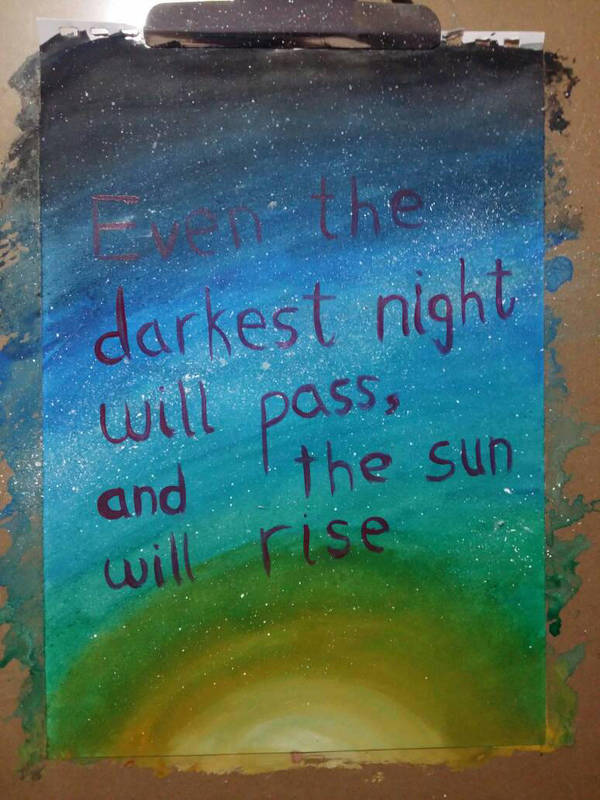 Even the
darkest night
will pass,
and the sun
will rise